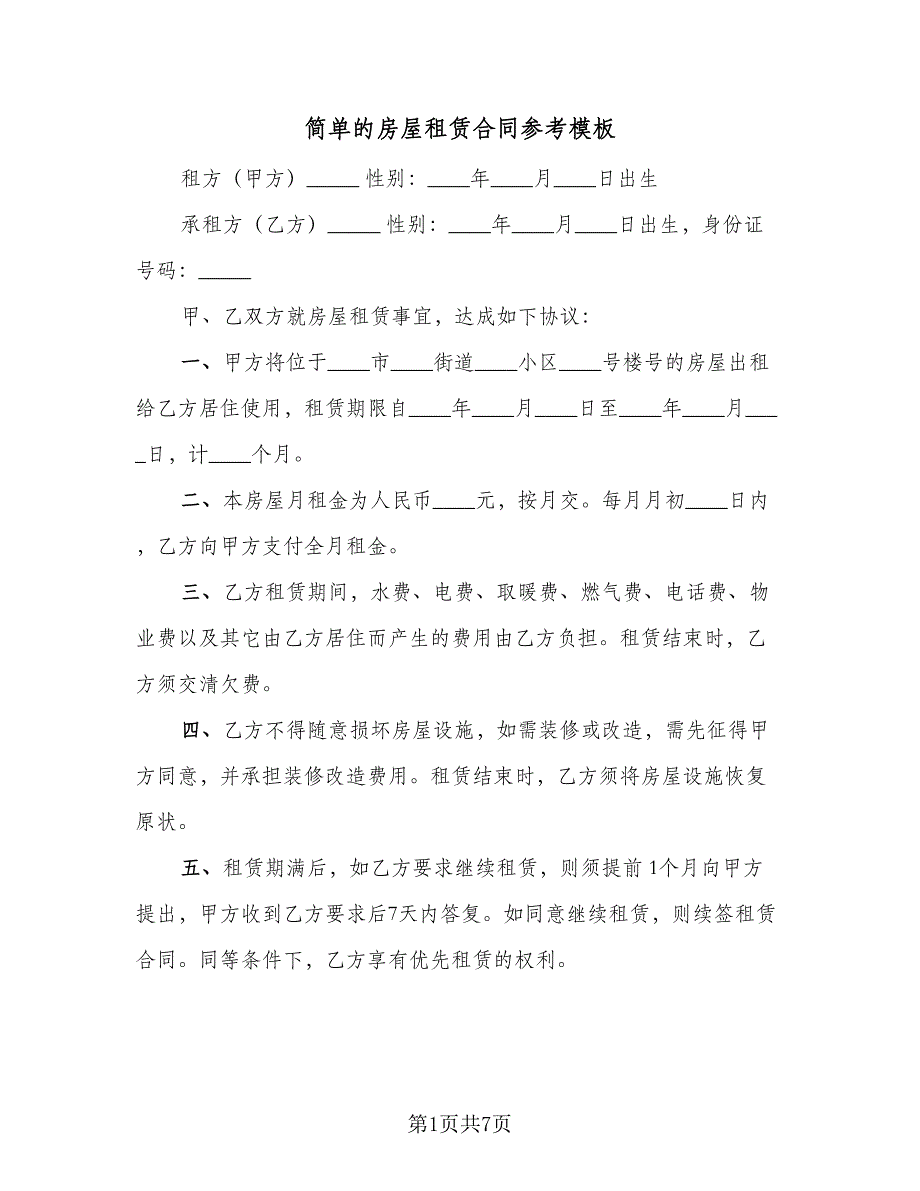 简单的房屋租赁合同参考模板
租方（甲方）_____ 性别：____年____月____日出生
承租方（乙方）_____ 性别：____年____月____日出生，身份证
号码：_____
甲、乙双方就房屋租赁事宜，达成如下协议：
一、甲方将位于____市____街道____小区____号楼号的房屋出租
给乙方居住使用，租赁期限自____年____月____日至____年____月___
_日，计____个月。
二、本房屋月租金为人民币____元，按月交。每月月初____日内
，乙方向甲方支付全月租金。
三、乙方租赁期间，水费、电费、取暖费、燃气费、电话费、物
业费以及其它由乙方居住而产生的费用由乙方负担。租赁结束时，乙
方须交清欠费。
四、乙方不得随意损坏房屋设施，如需装修或改造，需先征得甲
方同意，并承担装修改造费用。租赁结束时，乙方须将房屋设施恢复
原状。
五、租赁期满后，如乙方要求继续租赁，则须提前 1个月向甲方
提出，甲方收到乙方要求后7天内答复。如同意继续租赁，则续签租赁
合同。同等条件下，乙方享有优先租赁的权利。
第1页共7页